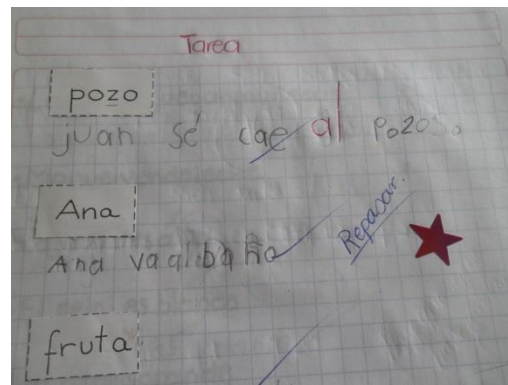 Tarea
pozo
juan sé cae al pozo
Ana
Ana va al baño
Repasar.
fruta